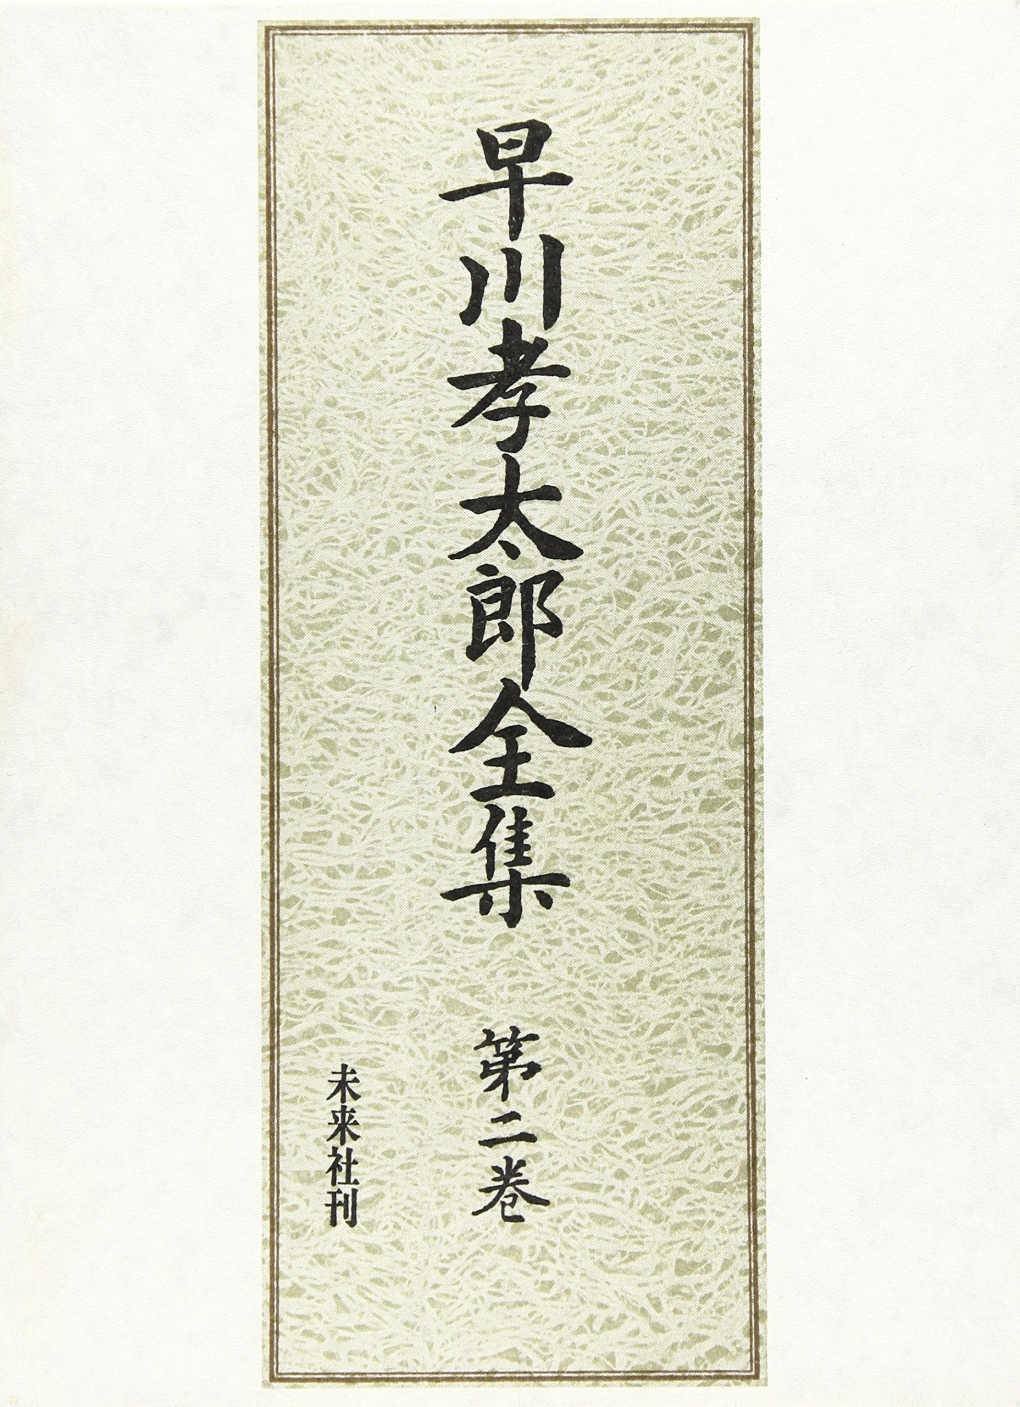 早川孝太郎全集
第二巻
未来社刊